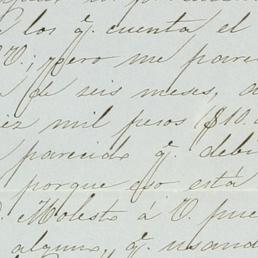 los q. cuenta el
V.; pero me pare
de seis meses, a
ez mil pesos ($10.
parecido q. debi
porque eso está
Molesto á V. pue
alguna, q. usand